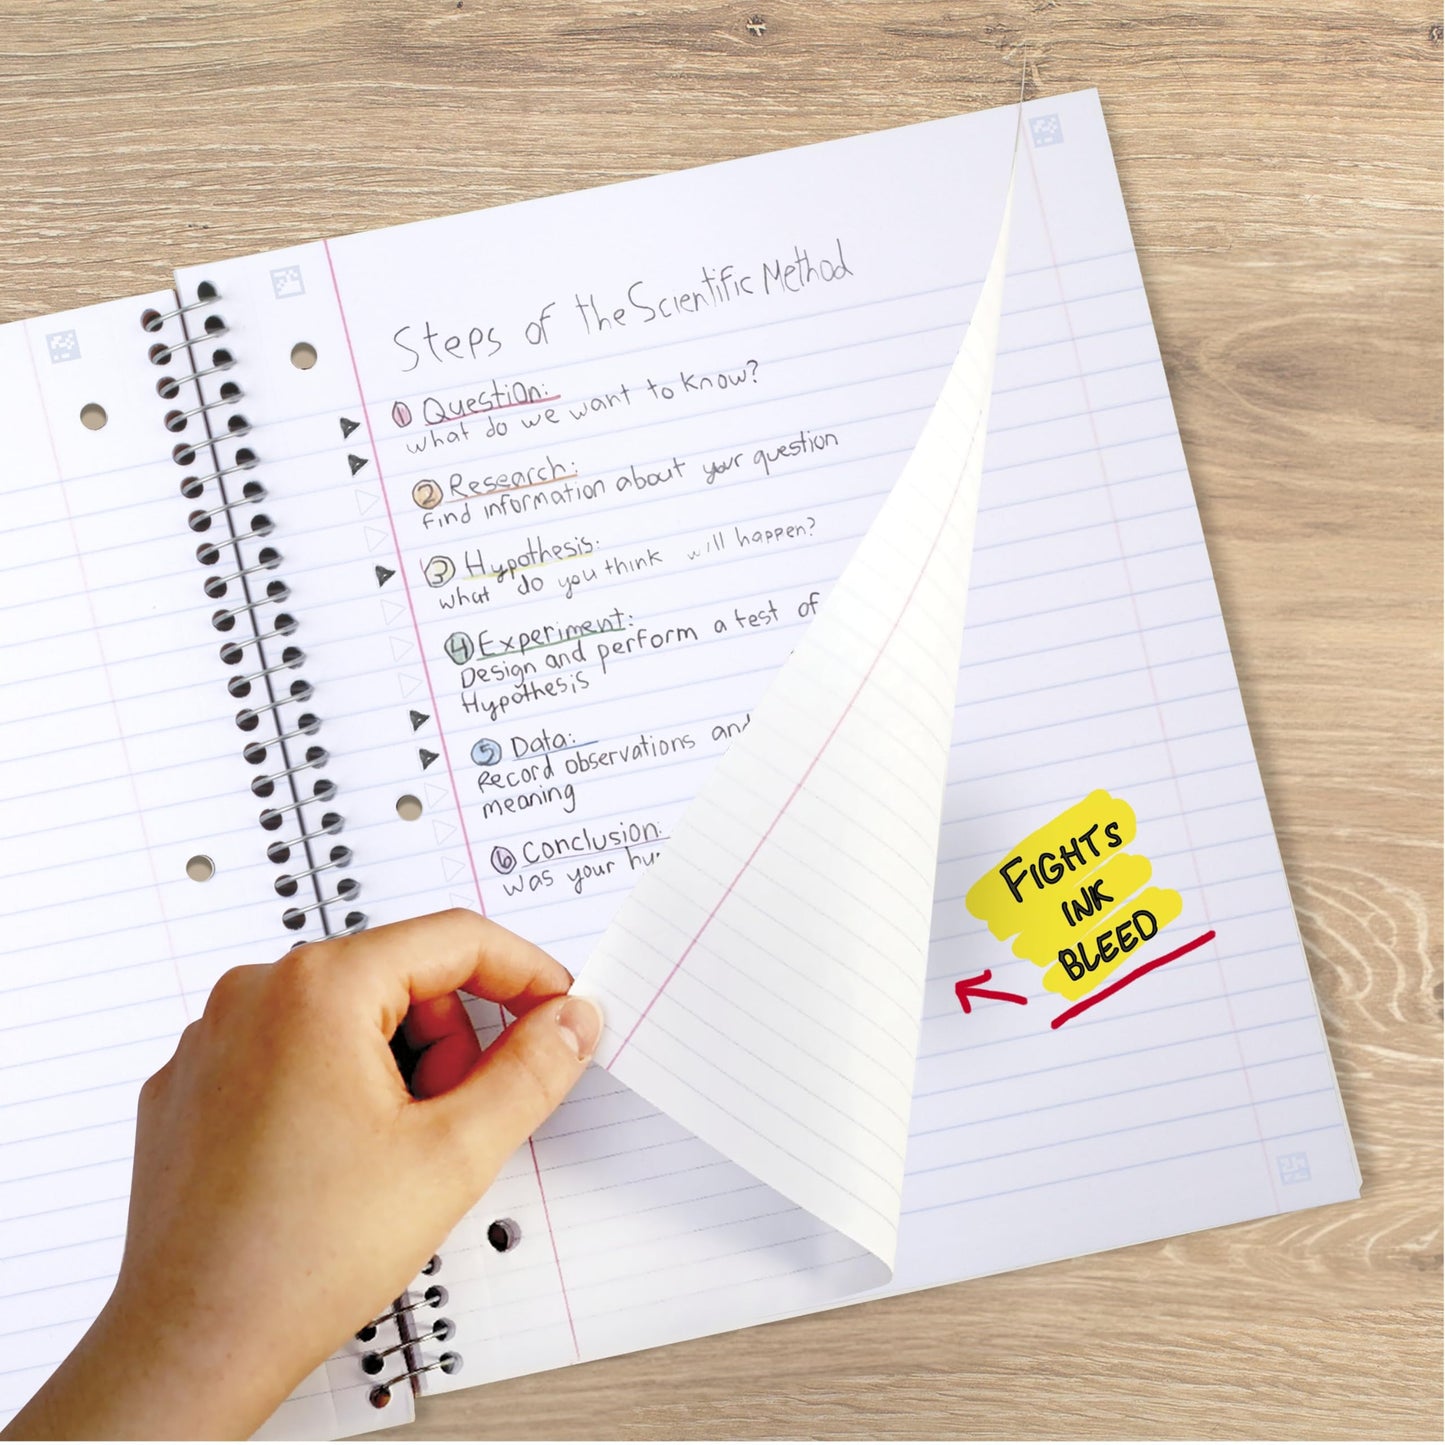 Steps of the Scientific Method
1 Question:
what do we want to know?
2 Research:
Find information about your question
3 Hypothesis:
what do you think will happen?
4 Experiment:
Design and perform a test of
Hypothesis
5 Data:
Record observations and
meaning
6 Conclusion:
was your
FIGHTS
INK
BLEED